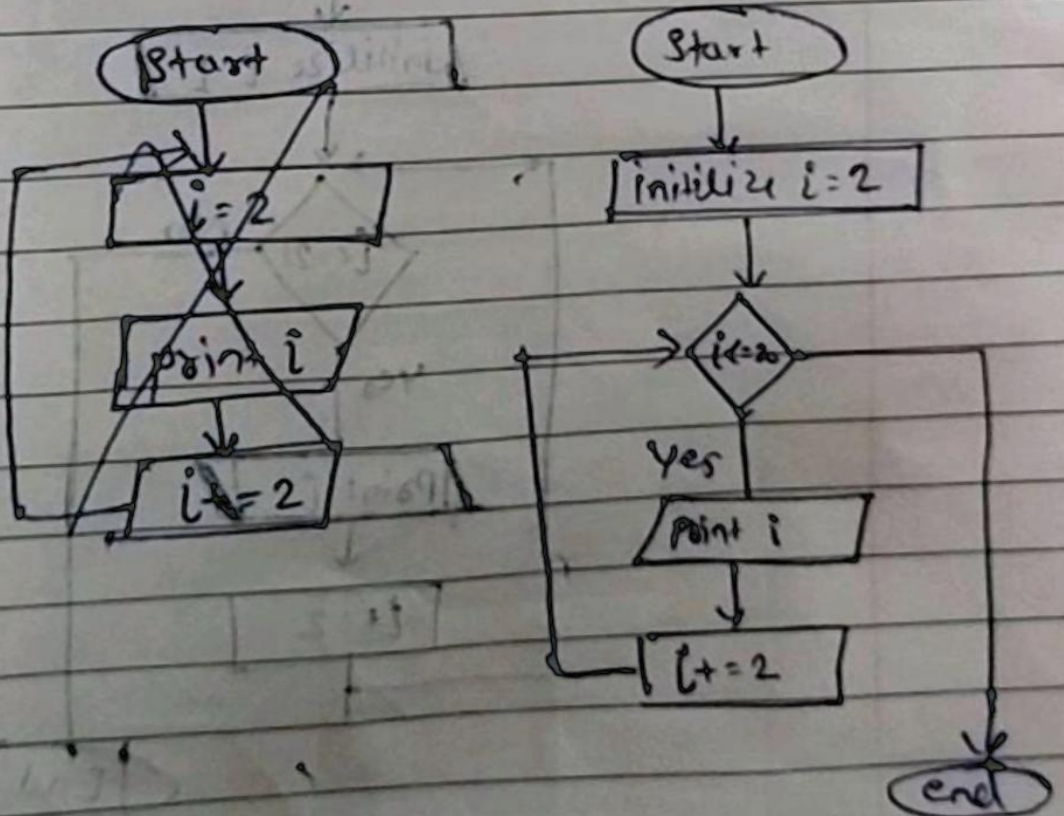 Start
i = 2
print i
i+= 2
Start
initilize i = 2
i<=20
Yes
Print i
i+ = 2
end